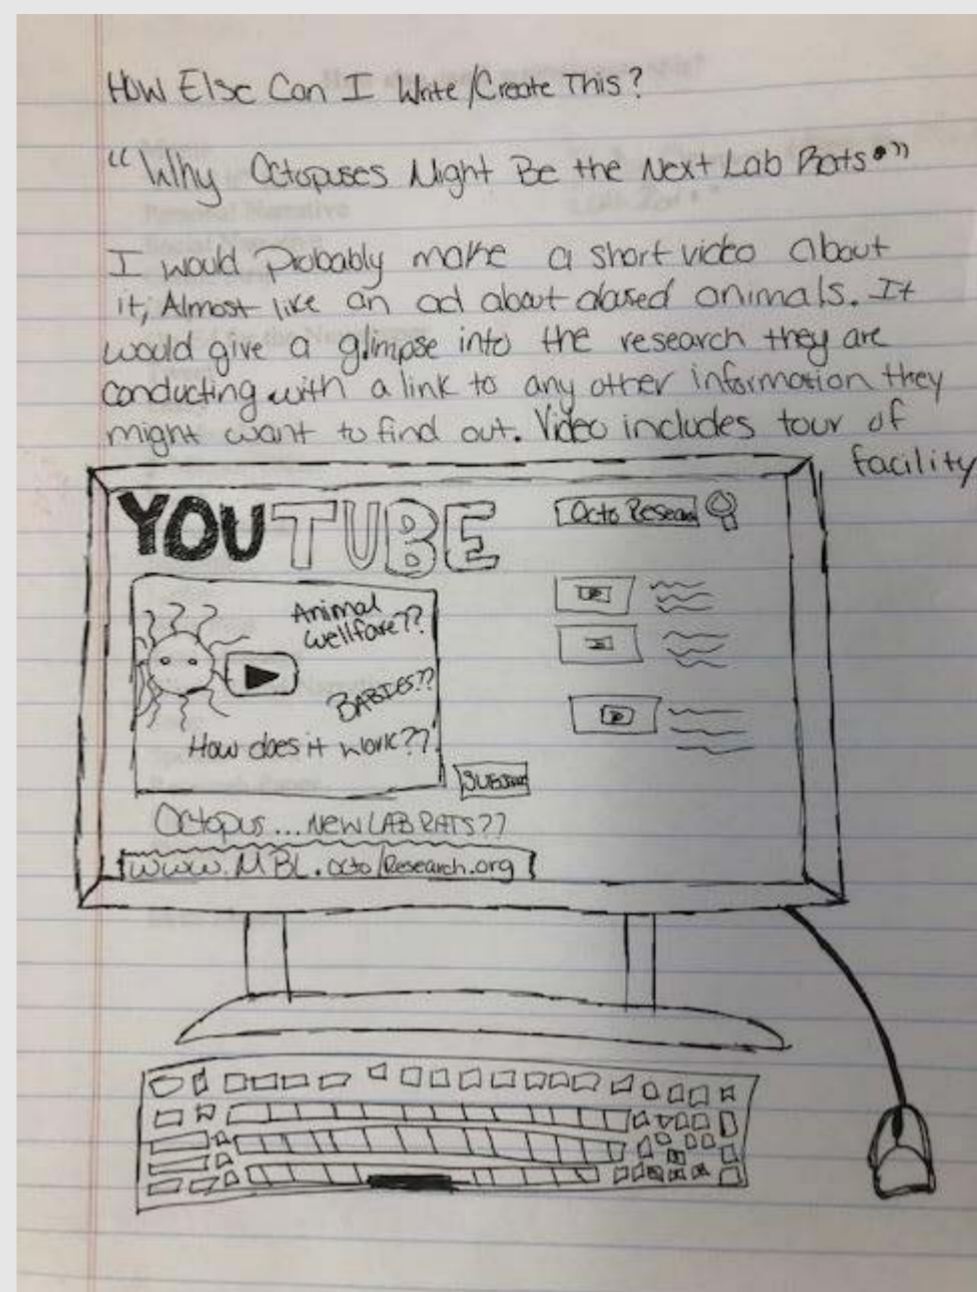 How Else Can I Write/Create This?
"Why Octopuses Might Be the Next Lab Rats."
I would Probably make a short video about
it, Almost like an ad about abused animals. It
would give a glimpse into the research they are
conducting with a link to any other information they
might want to find out. Video includes tour of
facility
YOUTUBE
Octo Resear
Animal
wellfare??
BABIES??
How does it work??
Octopus... NEW LAB RATS??
www.MBL.octo/Research.org